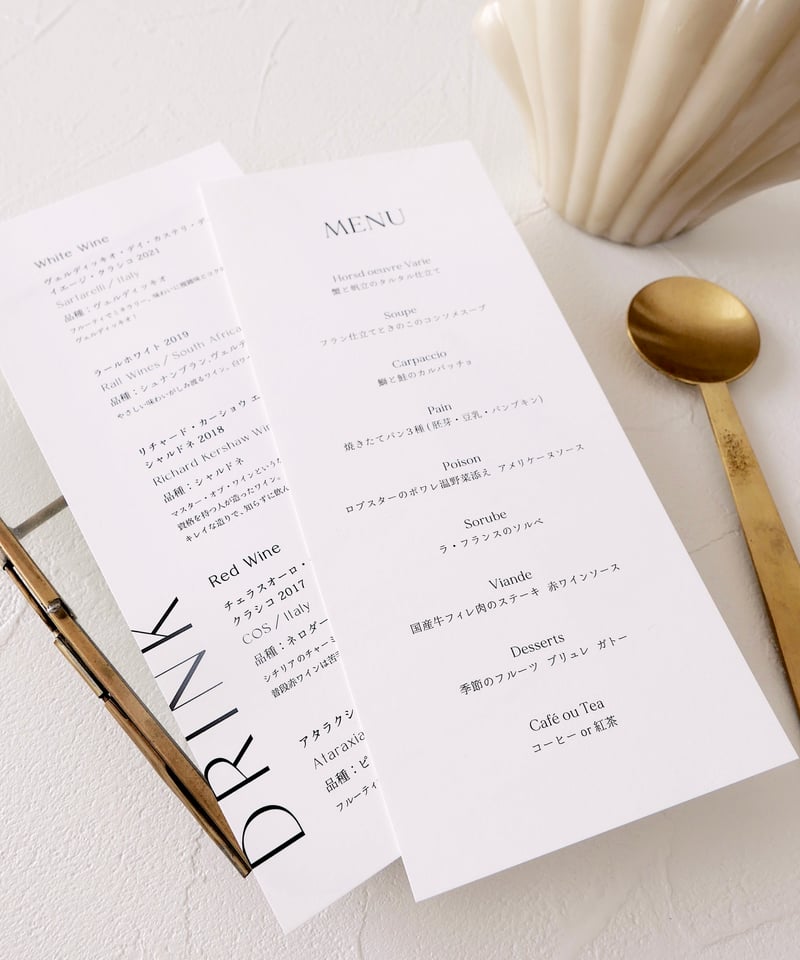 MENU
Horsd'oeuvre Varie
蟹と帆立のタルタル仕立て
Soupe
フラン仕立てときのこのコンソメスープ
Carpaccio
鰤と鮭のカルパッチョ
Pain
焼きたてパン3種(胚芽・豆乳・パンプキン)
Poison
ロブスターのポワレ温野菜添え アメリケーヌソース
Sorube
ラ・フランスのソルベ
Viande
国産牛フィレ肉のステーキ 赤ワインソース
Desserts
季節のフルーツ ブリュレ ガトー
Café ou Tea
コーヒー or 紅茶
DRINK
White Wine
ヴェルディッキオ・デイ・カステリ・デ
イエージ・クラシコ 2021
Sartarelli / Italy
品種：ヴェルディッキオ
フルーティでミネラリー。味わいに複雑味とコク
ヴェルディッキオ！
ラールホワイト 2019
Rall Wines / South Africa
品種：シュナンブラン、ヴェルデ
やさしい味わいがしみ渡るワイン。白ワ
リチャード・カーショウ エ
シャルドネ 2018
Richard Kershaw Win
品種：シャルドネ
マスター・オブ・ワインという
資格を持つ人が造ったワイン。
キレイな造りで、知らずに飲ん
Red Wine
チェラスオーロ・
クラシコ 2017
COS / Italy
品種：ネロダー
シチリアのチャーミ
普段赤ワインは苦手
アタラクシ
Ataraxia
品種：ピ
フルーティ